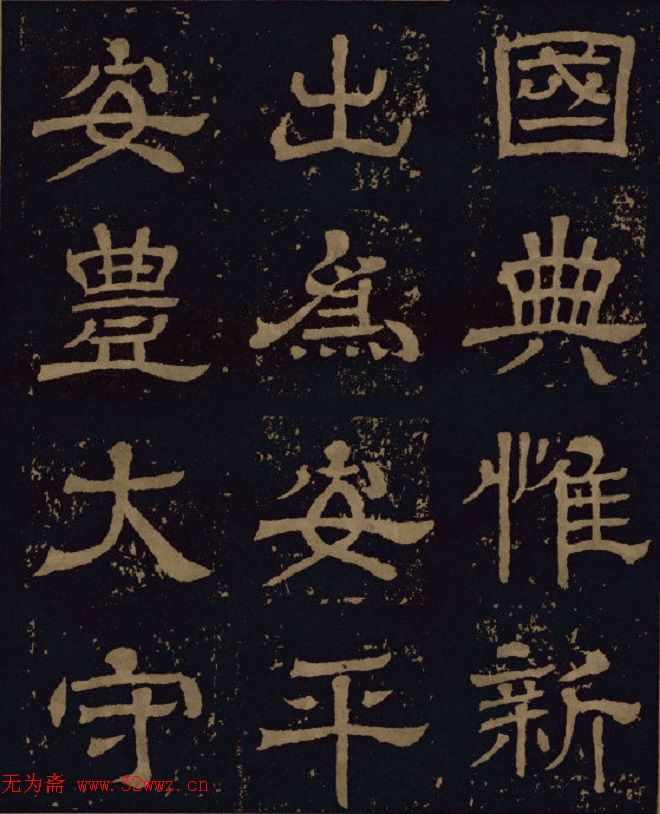 國典惟新
出為安平
安豊大守
无为斋 www.52wwz.cn